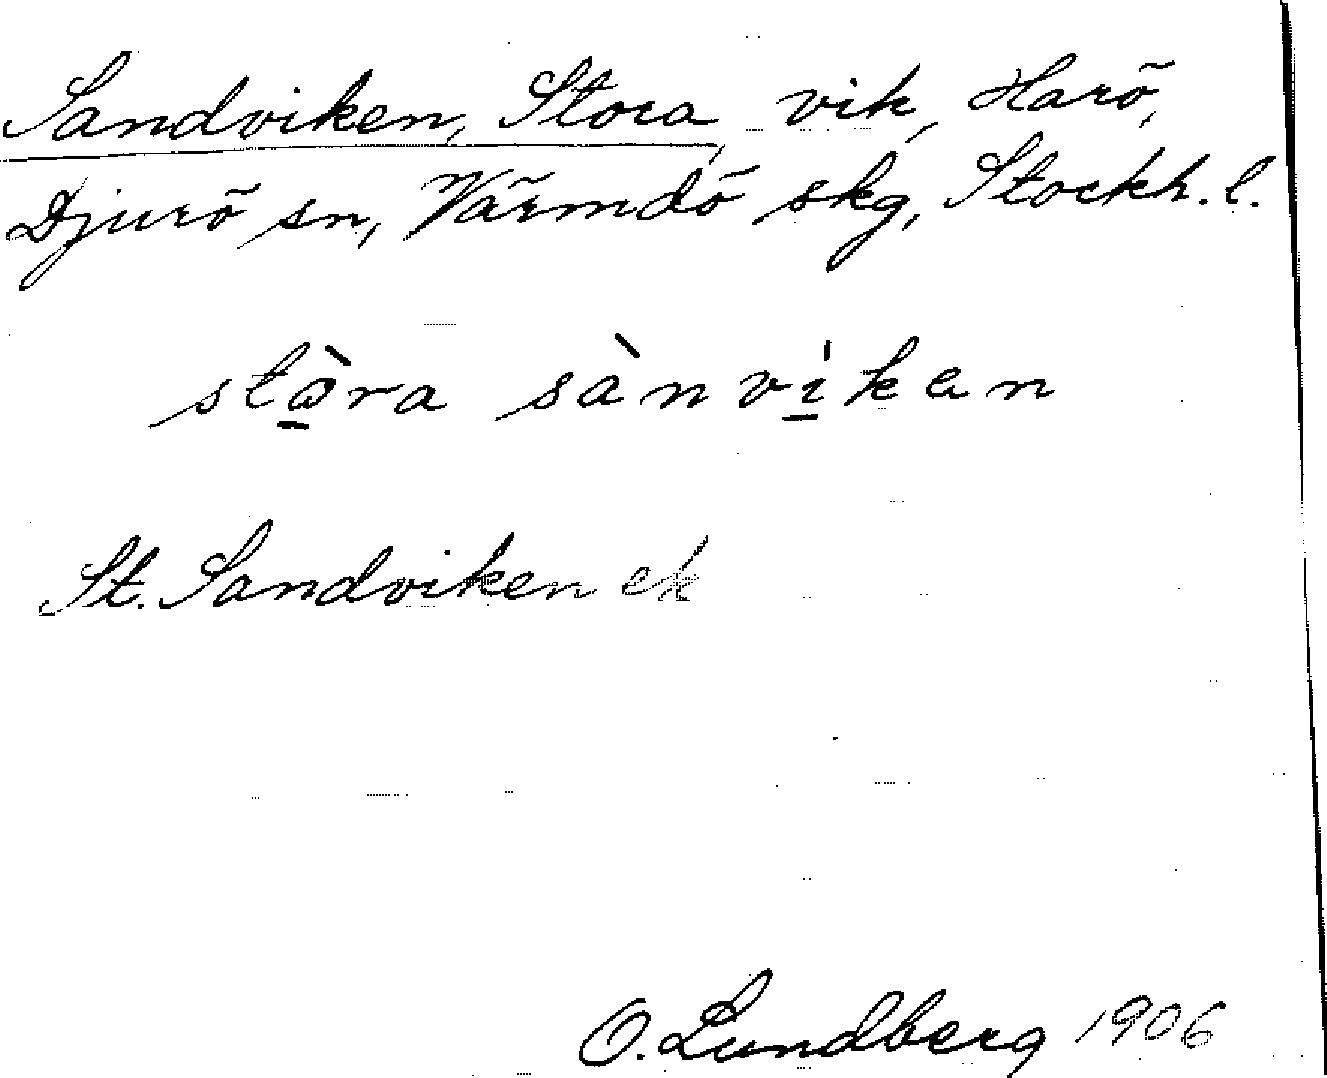 Sandviken, Stora, vik, Harö,
Djurö sn, Värmdö skg, Stockh. l.
stòra sànvíken
St. Sandviken ek
O. Lundberg 1906